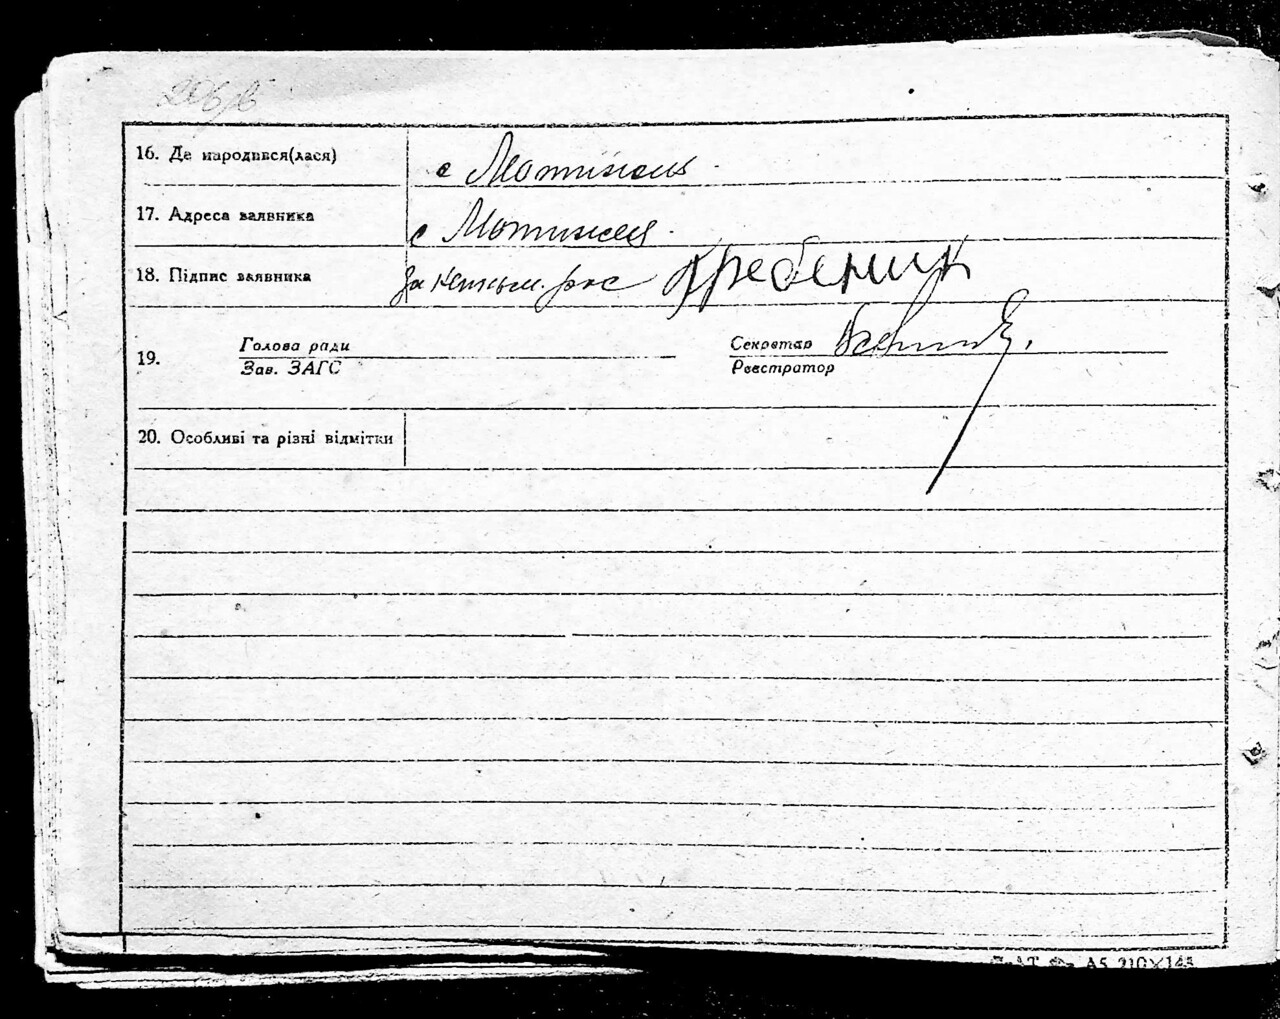 206
16. Де народився(лася) с Мотижин
17. Адреса заявника с Мотижин
18. Підпис заявника За неписьм. рос Гребеник
Голова ради Секретар
19.
Зав. ЗАГС Реєстратор
20. Особливі та різні відмітки
А5 210×148